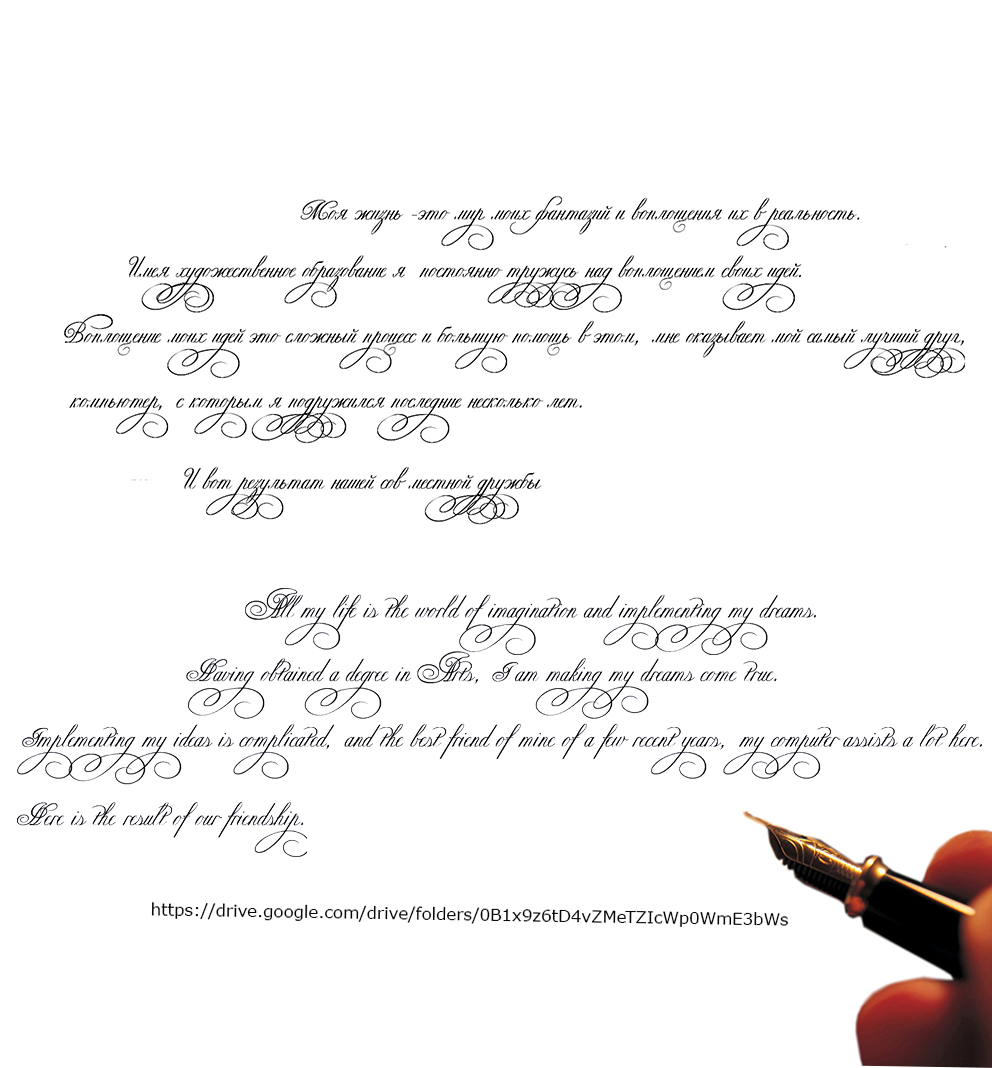 Моя жизнь -это мир моих фантазий и воплощения их в реальность.
Имея художественное образование я постоянно тружусь над воплощением своих идей.
Воплощение моих идей это сложный процесс и большую помощь в этом, мне оказывает мой самый лучший друг,
компьютер, с которым я подружился последние несколько лет.
И вот результат нашей сов местной дружбы
All my life is the world of imagination and implementing my dreams.
Having obtained a degree in Arts, I am making my dreams come true.
Implementing my ideas is complicated, and the best friend of mine of a few recent years, my computer assists a lot here.
Here is the result of our friendship.
https://drive.google.com/drive/folders/0B1x9z6tD4vZMeTZIcWp0WmE3bWs